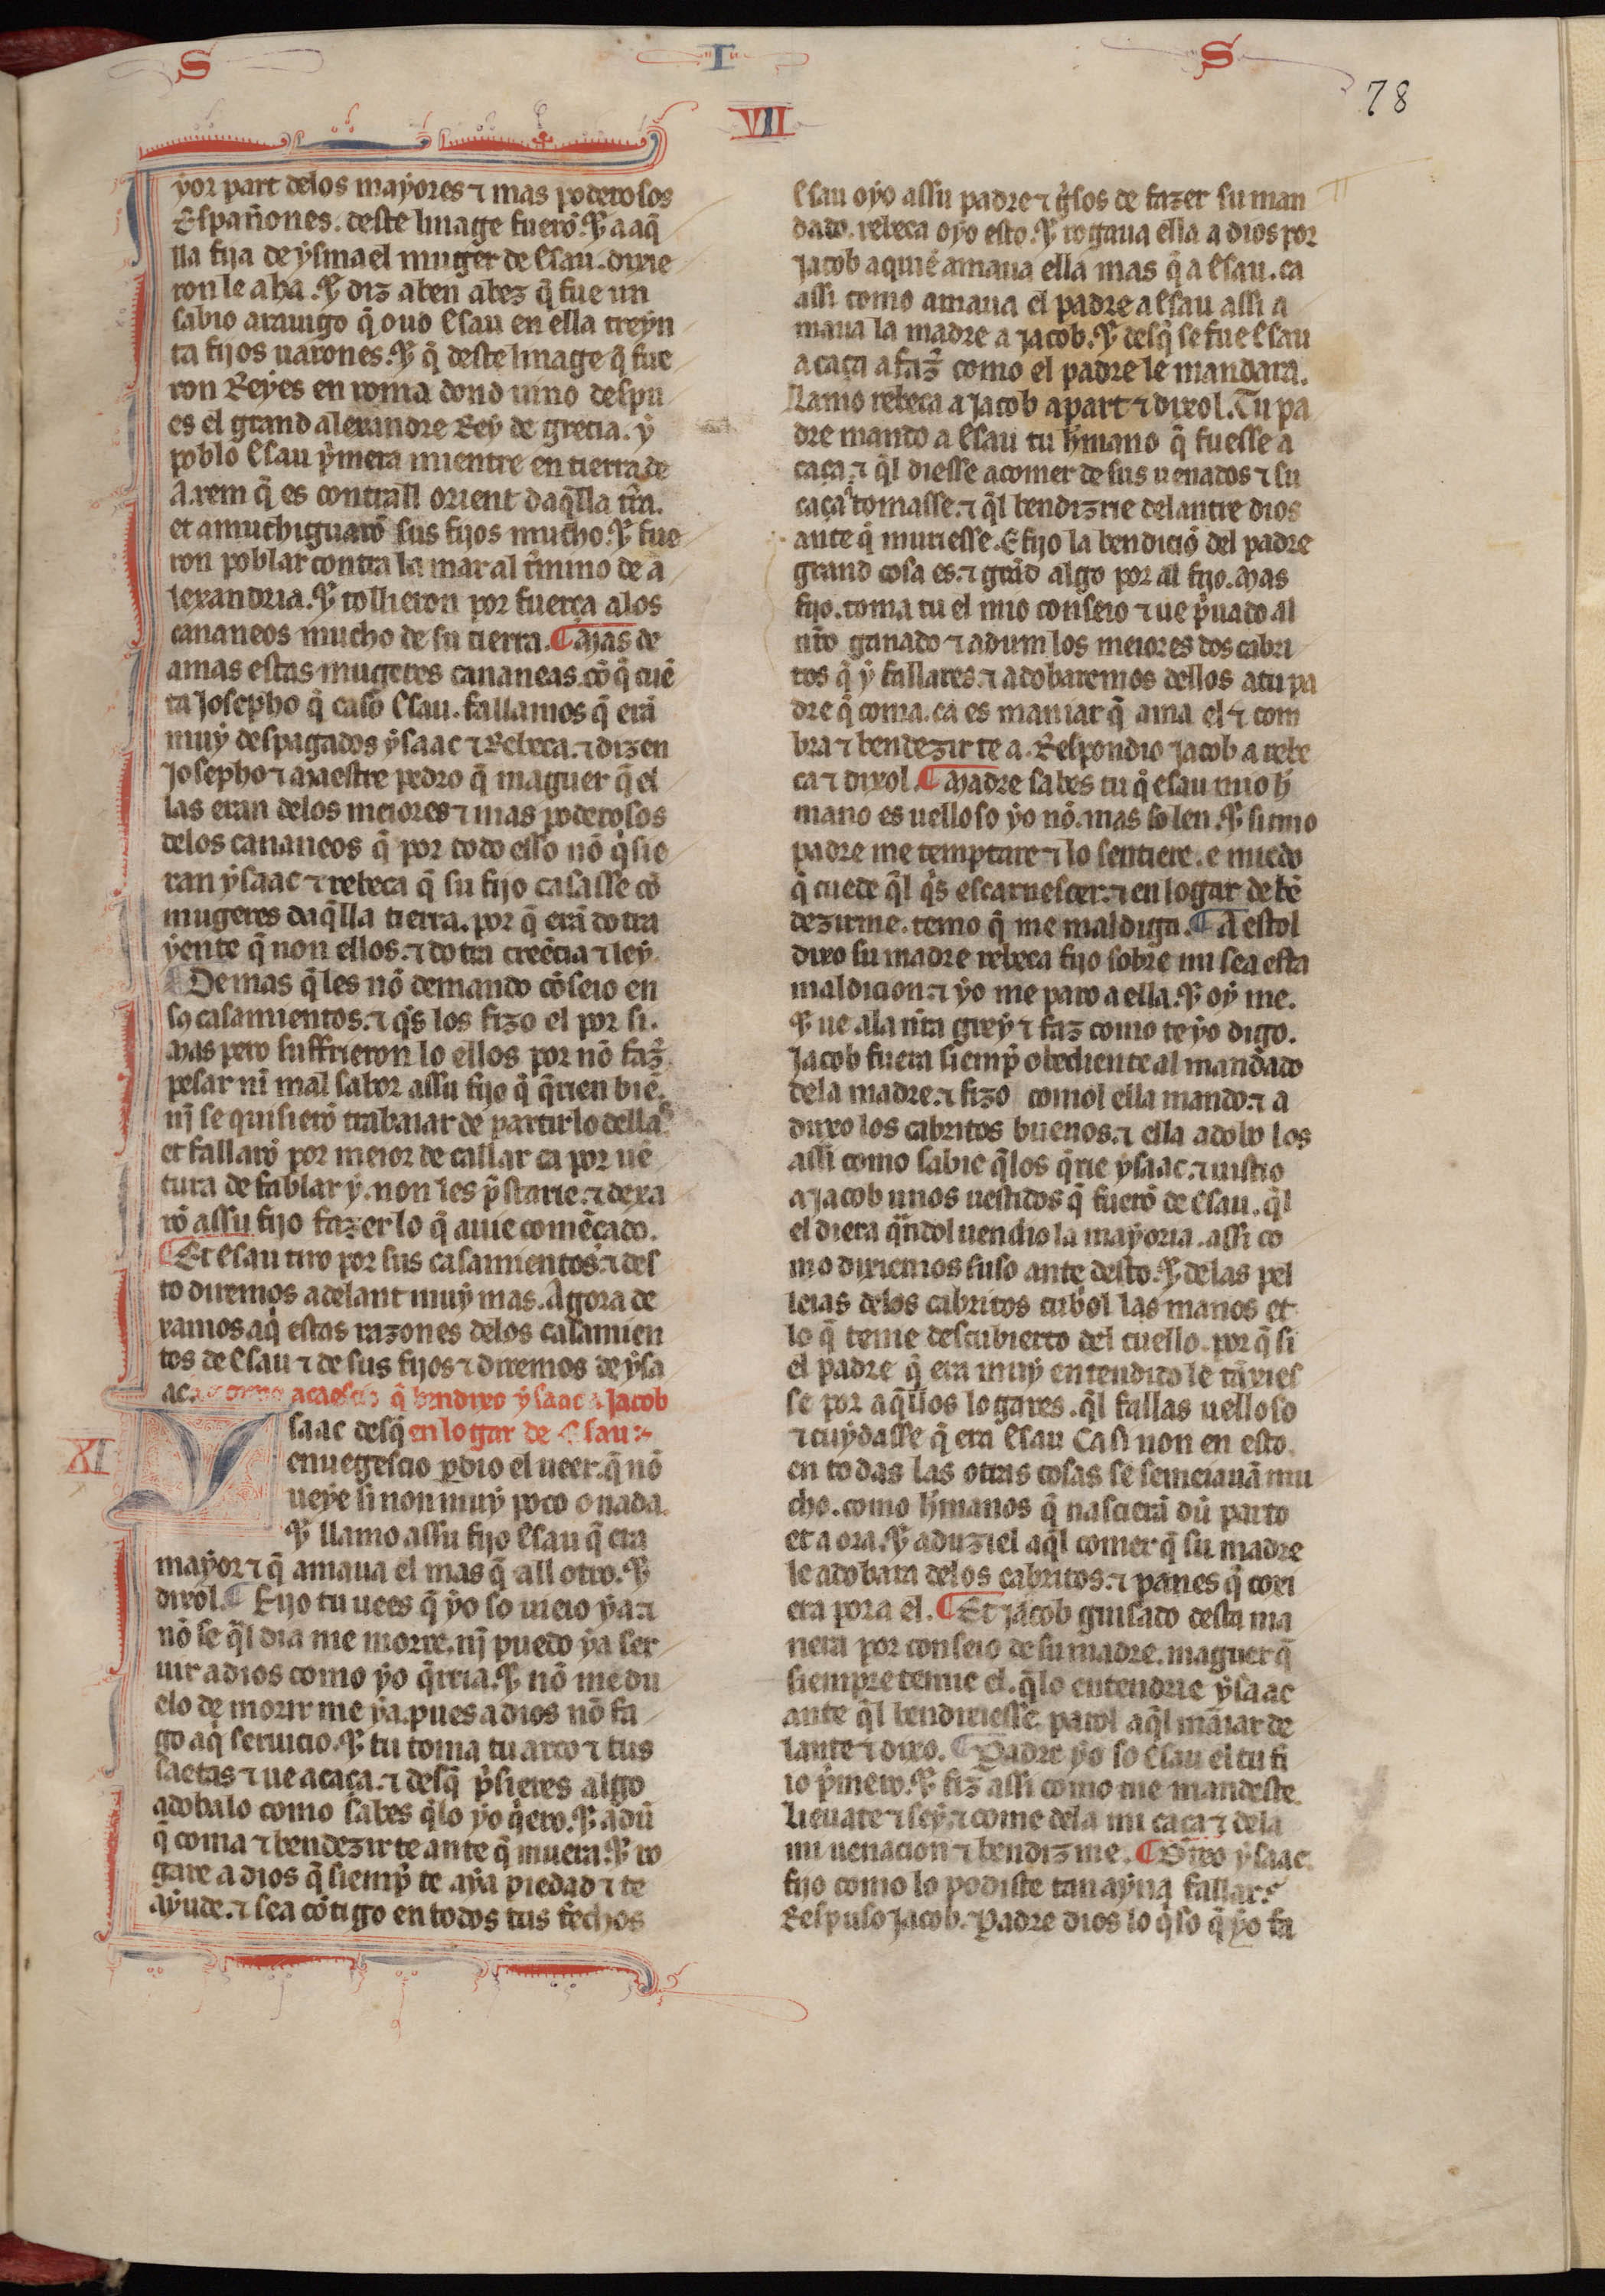 S I S
VII
78
yor part delos mayores ⁊ mas poderosos
Españones. deste linage fuerõ. ⁊ a aq̃
lla fija de ysmael muger de Esau. dixie
ron le aha. ⁊ diz aben abez q̃ fue un
sabio arauigo q̃ ouo Esau en ella treyn
ta fijos uarones. ⁊ q̃ deste linage q̃ fue
ron Reyes en roma dond uino despu
es el grand alexandre Rey de grecia. y
poblo Esau p̃mera mientre en tierra de
Arem q̃ es contrall orient daq̃lla tr̃ra.
et amuchiguarõ sus fijos mucho. ⁊ fue
ron poblar contra la mar al tr̃mino de a
lexandria. ⁊ tollieron por fuerça alos
cananeos mucho de su tierra. ¶ Mas de
amas estas mugeres cananeas. cõ q̃ cuẽ
ta Josepho q̃ caso Esau. fallamos q̃ erã
muy despagados ysaac ⁊ Rebeca. ⁊ dizen
Josepho ⁊ Maestre pedro q̃ maguer q̃ el
las eran delos meiores ⁊ mas poderosos
delos cananeos q̃ por todo esso nõ q̃sie
ran ysaac ⁊ rebeca q̃ su fijo casasse cõ
mugeres daq̃lla tierra. por q̃ erã dotra
yente q̃ non ellos. ⁊ dotra creẽcia ⁊ ley.
¶ Demas q̃ les nõ demando cõseio en
sos casamientos. ⁊ q̃s los fizo el por si.
Mas pero suffrieron lo ellos por nõ faz̃
pesar nĩ mal sabor assu fijo q̃ q̃rien biẽ.
nĩ se quisierõ trabaiar de partirlo dellas
et fallarõ por meior de callar ca por uẽ
tura de fablar y. non les p̃starie. ⁊ dexa
rõ assu fijo fazer lo q̃ auie comẽcado.
¶ Et Esau tiro por sus casamientos. ⁊ des
to diremos adelant muy mas. Agora de
xamos aq̃ estas razones delos casamien
tos de Esau ⁊ de sus fijos ⁊ diremos de ysa
ac. como acaescio q̃ bendixo ysaac a Jacob
XI
Ysaac desq̃ en logar de Esau
enuegescio p̱dio el ueer. q̃ nõ
ueye si non muy poco o nada.
⁊ llamo assu fijo Esau q̃ era
mayor ⁊ q̃ amaua el mas q̃ all otro. ⁊
dixol. ¶ Fijo tu uees q̃ yo so uieio ya. ⁊
nõ se q̃l dia me morre. nĩ puedo ya ser
uir a dios como yo q̃rria. ⁊ nõ me du
elo de morir me ya. pues a dios nõ fa
go aq̃ seruicio. ⁊ tu toma tu arco ⁊ tus
saetas ⁊ ue a caça. ⁊ desq̃ p̃sieres algo
adobalo como sabes q̃lo yo q̃ero. ⁊ adũ
q̃ coma ⁊ bendezir te ante q̃ muera. ⁊ ro
gare a dios q̃ siemp̃ te aya piedad ⁊ te
ayude. ⁊ sea cõtigo en todos tus fechos
Esau oyo assu padre ⁊ g̃sos de fazer su man
dado. rebeca oyo esto. ⁊ rogaua ella a dios por
Jacob a quiẽ amaua ella mas q̃ a Esau. ca
assi como amaua el padre a Esau assi a
maua la madre a Jacob. ⁊ desq̃ se fue Esau
a caça a faz̃ como el padre le mandara.
llamo rebeca a Jacob apart ⁊ dixol. Tu pa
dre mando a Esau tu h̃mano q̃ fuesse a
caça ⁊ q̃l diesse a comer de sus uenados ⁊ su
caça q̃ tomasse. ⁊ q̃l bendizrie delantre dios
ante q̃ muriesse. E fijo la bendiciõ del padre
grand cosa es. ⁊ grãd algo por al fijo. Mas
fijo. toma tu el mio conseio ⁊ ue p̃uado al
nr̃o ganado ⁊ adum los meiores dos cabri
tos q̃ y fallares. ⁊ adobaremos dellos atu pa
dre q̃ coma. ca es maniar q̃ ama el ⁊ com
bra ⁊ bendezir te a. Respondio Jacob a rebe
ca ⁊ dixol. ¶ Madre sabes tu q̃ esau mio h̃
mano es uelloso yo nõ. mas so len. ⁊ si mio
padre me temptare ⁊ lo sentiere. e miedo
q̃ cuede q̃l q̃s escarnescer. ⁊ en logar de bẽ
dezirme. temo q̃ me maldiga. ¶ A estol
dixo su madre rebeca fijo sobre mi sea esta
maldicion. ⁊ yo me paro a ella. ⁊ oy me.
⁊ ue ala nr̃a grey ⁊ faz como te yo digo.
Jacob fuera siemp̃ obediente al mandado
dela madre. ⁊ fizo comol ella mando. ⁊ a
duxo los cabritos buenos. ⁊ ella adobo los
assi como sabie q̃los q̃rie ysaac. ⁊ uistio
a Jacob unos uestidos q̃ fuerõ de Esau. q̃l
el diera q̃ndol uendio la mayoria. assi co
mo dixiemos suso ante desto. ⁊ delas pel
leias delos cabritos cubol las manos et
lo q̃ tenie descubierto del cuello. por q̃ si
el padre q̃ era muy entendudo le tãxies
se por aq̃llos logares. q̃l fallas uelloso
⁊ cuydasse q̃ era Esau Ca si non en esto.
en todas las otras cosas se semeiauã mu
cho. como h̃manos q̃ nascierã dũ parto
et a ora. ⁊ aduziel aq̃l comer q̃ su madre
le adobara delos cabritos. ⁊ panes q̃ cozi
era pora el. ¶ Et Jacob guisado desta ma
nera por conseio de su madre. maguer q̃
siempre temie el. q̃lo entendrie ysaac
ante q̃l bendixiesse. parol aq̃l mãiar de
lante ⁊ dixo. ¶ Padre yo so Esau el tu fi
io p̃mero. ⁊ fiz assi como me mandeste.
lieuate ⁊ sey. ⁊ come dela mi caça ⁊ dela
mi uenacion ⁊ bendiz me. ¶ Dixo ysaac.
fijo como lo podiste tan ayna fallar.
Respuso Jacob. Padre dios lo q̃so q̃ yo fa